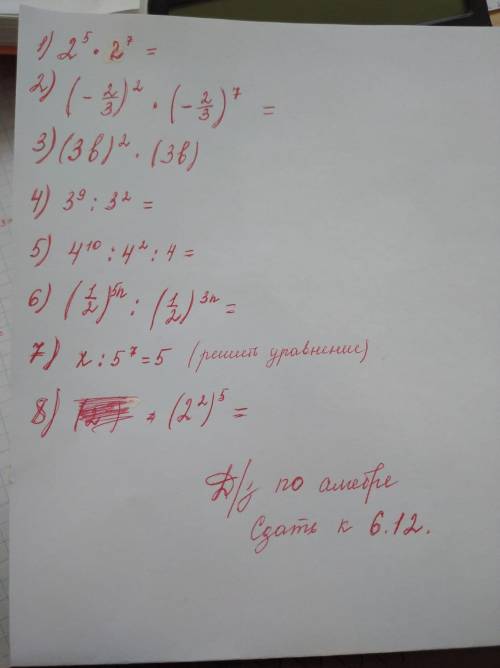 1) 2⁵ · 2⁷ =
2) (-2/3)² · (-2/3)⁷ =
3) (3в)² · (3в)
4) 3⁹ : 3² =
5) 4¹⁰ : 4² : 4 =
6) (1/2)⁵ⁿ : (1/2)³ⁿ =
7) x : 5⁷ = 5 (решить уравнение)
8) (2²)⁵ =
Д/з по алгебре
Сдать к 6.12.